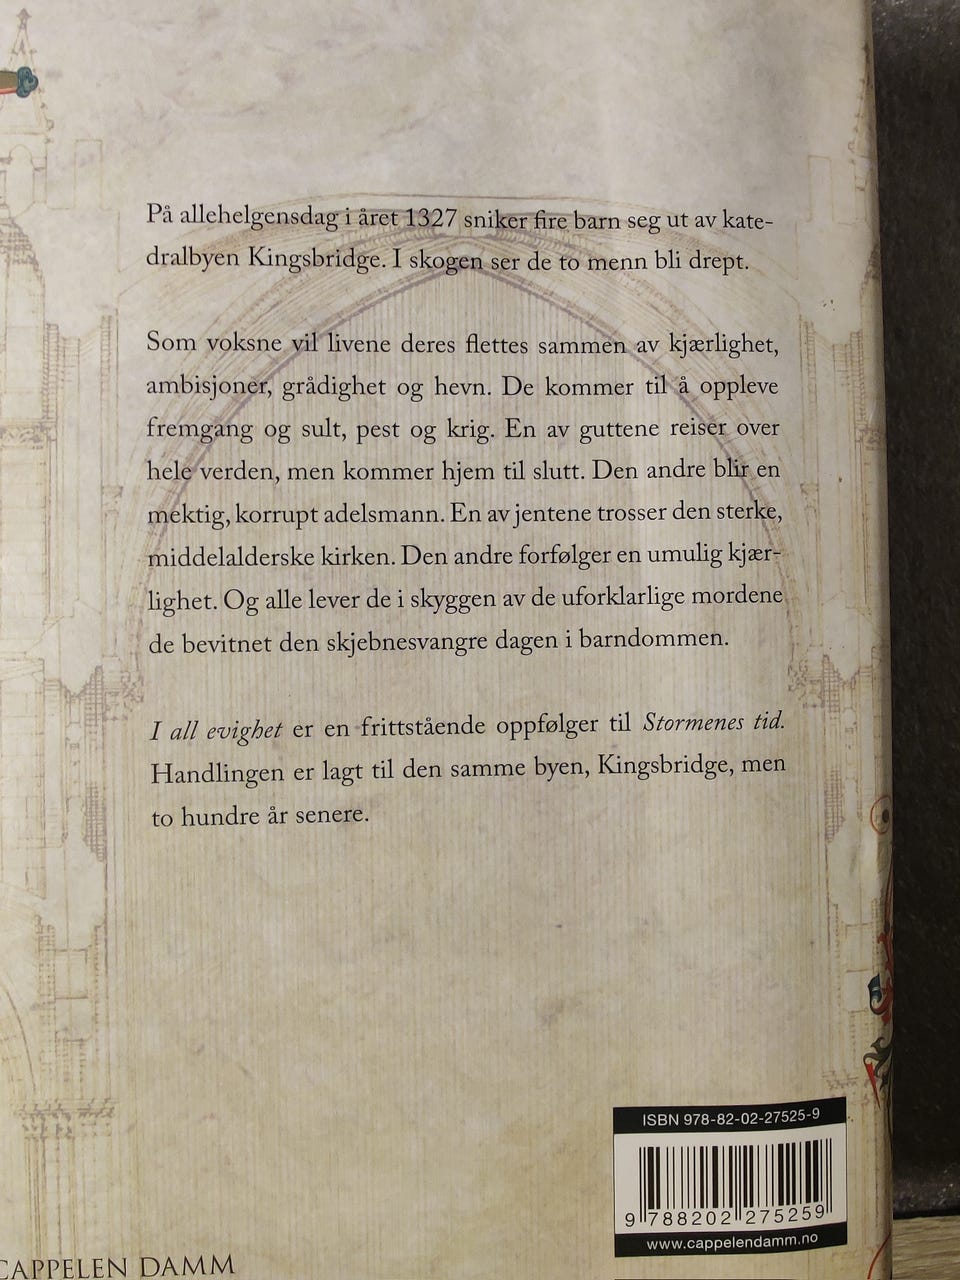 På allehelgensdag i året 1327 sniker fire barn seg ut av kate-
dralbyen Kingsbridge. I skogen ser de to menn bli drept.
Som voksne vil livene deres flettes sammen av kjærlighet,
ambisjoner, grådighet og hevn. De kommer til å oppleve
fremgang og sult, pest og krig. En av guttene reiser over
hele verden, men kommer hjem til slutt. Den andre blir en
mektig, korrupt adelsmann. En av jentene trosser den sterke,
middelalderske kirken. Den andre forfølger en umulig kjær-
lighet. Og alle lever de i skyggen av de uforklarlige mordene
de bevitnet den skjebnesvangre dagen i barndommen.
I all evighet er en frittstående oppfølger til Stormenes tid.
Handlingen er lagt til den samme byen, Kingsbridge, men
to hundre år senere.
ISBN 978-82-02-27525-9
9 788202 275259
www.cappelendamm.no
CAPPELEN DAMM